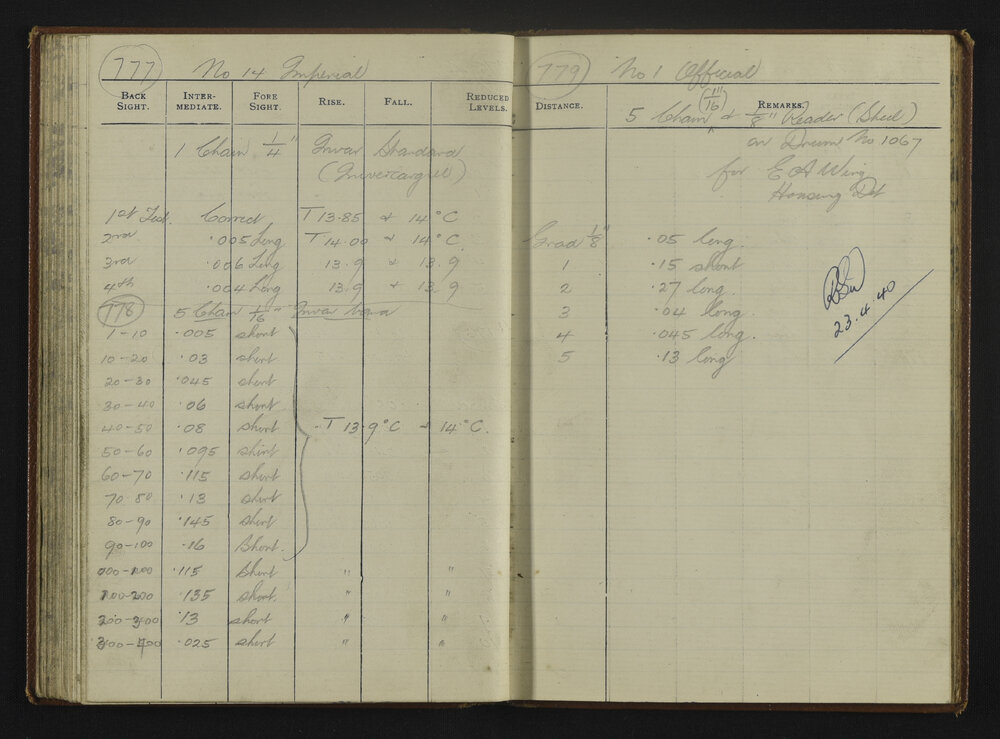 777 No 14 Imperial
BACK SIGHT. INTER-MEDIATE. FORE SIGHT. RISE. FALL. REDUCED LEVELS.
1 Chain 1/4" Invar Standard
(Invercargill)
1st Test. Correct T 13.85 & 14°C
2nd .005 Long T 14.00 & 14°C
3rd .006 Long 13.9 & 13.9
4th .004 Long 13.9 & 13.9
778 5 Chain 1/16" Invar Band
1-10 .005 short
10-20 .03 short
20-30 .045 short
30-40 .06 short
40-50 .08 short T 13.9°C & 14°C.
50-60 .095 short
60-70 .115 short
70-80 .13 short
80-90 .145 short
90-100 .16 Short.
.115 Short " "
100-200 .135 short. " "
200-300 .13 short " "
300-400 .025 short " "
779 No 1 Official
DISTANCE. REMARKS.
5 Chain (1/16") & 1/8" Reader (Steel)
on Drum No 1067
for E A Wing
Housing Dpt
Grad 1/8" .05 long.
1 .15 short
2 .27 long.
3 .04 long.
4 .045 long.
5 .13 long
23.4.40